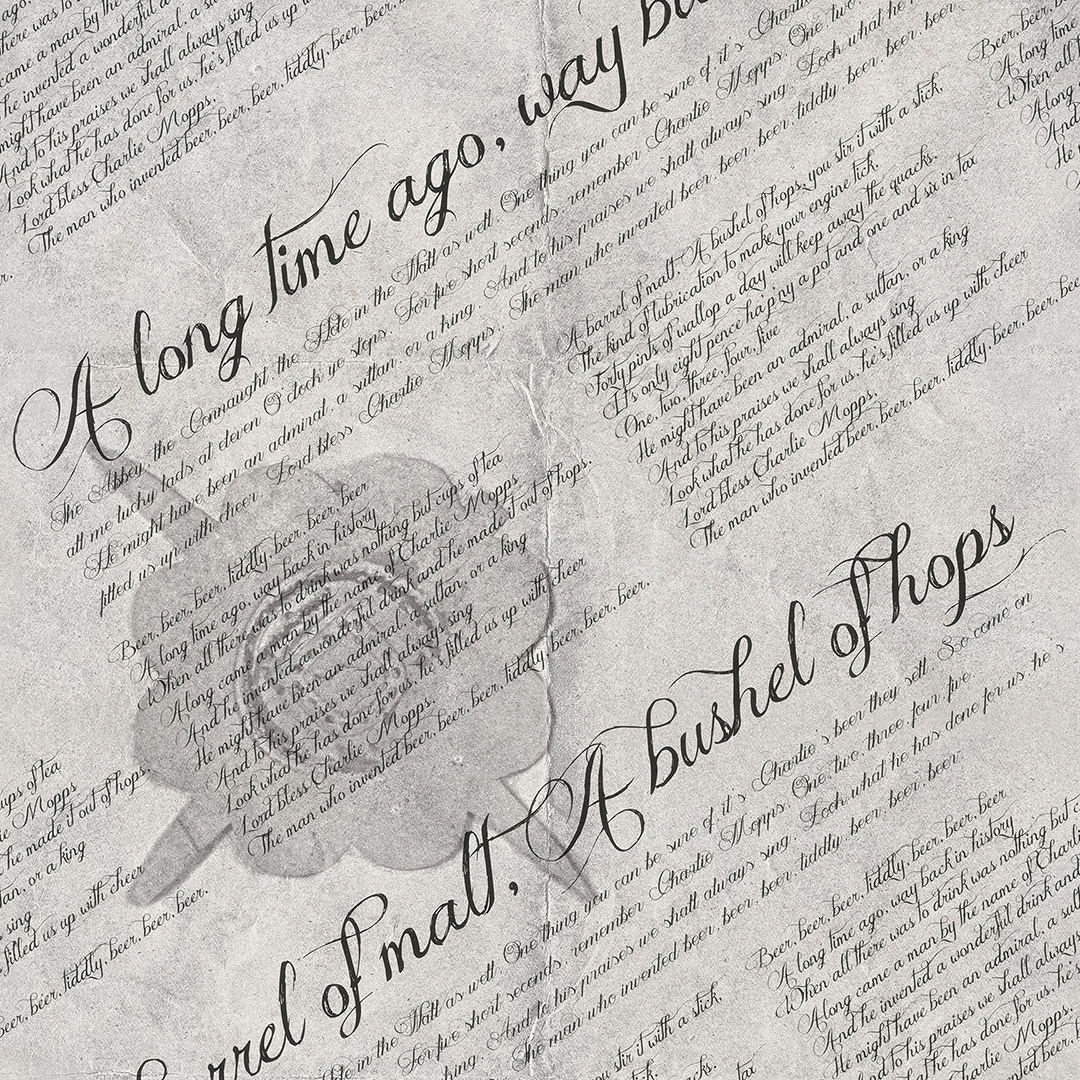 ago,
there was to
came a man by the
he invented a wonderful
might have been an admiral, a su
And to his praises we shall always sing
Look what he has done for us, he's filled us up w
Lord bless Charlie Mopps,
The man who invented beer, beer, beer, tiddly, beer, beer,
r.
A long time ago, way ba
The Abbey the Connaught, the Hole in the Wall as well. One thing you can be sure of it's Charlie
all me lucky lads at eleven O'clock ye stops. For five short seconds, remember Charlie Mopps. One, two,
He might have been an admiral, a sultan, or a king. And to his praises we shall always sing. Look what he h
filled us up with cheer. Lord bless Charlie Mopps. The man who invented beer, beer, beer, tiddly, beer, beer, beer.
A barrel of malt, A bushel of hops, you stir it with a stick,
The kind of lubrication to make your engine tick.
Forty pints of wallop a day will keep away the quacks.
It's only eight pence ha'p'ny a pot and one and six in tax
One, two, three, four, five
He might have been an admiral, a sultan, or a king
And to his praises we shall always sing
Look what he has done for us, he's filled us up with cheer
Lord bless Charlie Mopps.
The man who invented beer, beer, beer, tiddly, beer, beer, bee
Beer, beer,
A long time
When all t
Along
And
He
Beer, beer, beer, tiddly, beer, beer, beer
A long time ago, way back in history
When all there was to drink was nothing but cups of tea
Along came a man by the name of Charlie Mopps
And he invented a wonderful drink and he made it out of hops.
He might have been an admiral, a sultan, or a king
And to his praises we shall always sing
Look what he has done for us, he's filled us up with cheer
Lord bless Charlie Mopps.
The man who invented beer, beer, beer, tiddly, beer, beer, beer.
ups of tea
ie Mopps
he made it out of hops.
tan, or a king
sing
filled us up with cheer
beer, tiddly, beer, beer, beer.
rrel of malt, A bushel of hops
Charlie's beer they sell. So come on
le in the Wall as well. One thing you can be sure of it's Charlie Mopps. One, two, three, four, five
For five short seconds, remember Charlie Mopps. Look what he has done for us, he's
g. And to his praises we shall always sing. beer, tiddly, beer, beer, beer.
The man who invented beer, beer,
you stir it with a stick,
tick.
quacks.
tax
Beer, beer, beer, tiddly, beer, beer, beer
A long time ago, way back in history
When all there was to drink was nothing but c
Along came a man by the name of Charli
And he invented a wonderful drink and
He might have been an admiral, a sult
And to his praises we shall always
Look what he has done for us, he's
Lord bless Charlie Mopps.
The man who invented beer,